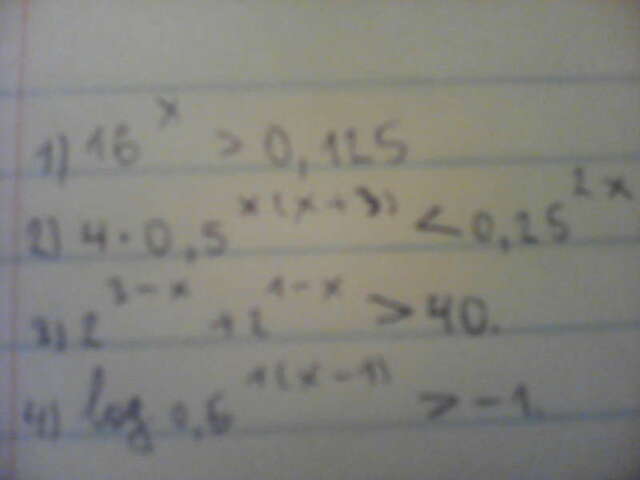 1) 16^x > 0,125
2) 4·0,5^x(x+3) < 0,25^2x
3) 2^3-x + 2^1-x > 40.
4) log 0,6^1(x-1) > -1.